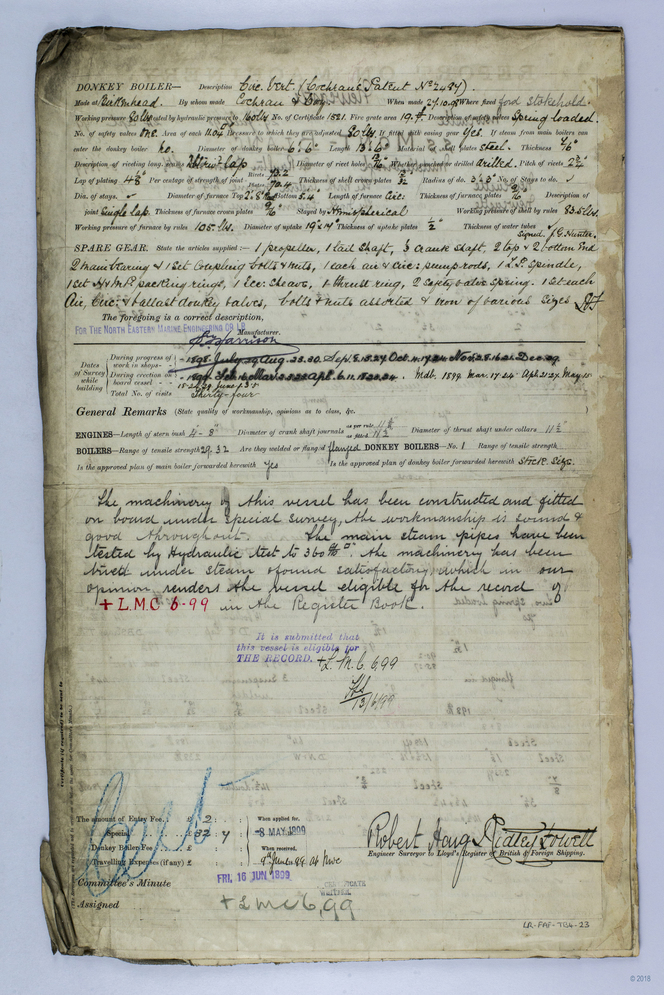 DONKEY BOILER— Description Circ. Vert. (Cochran's Patent No 2487).
Made at Birkenhead. By whom made Cochran & Coy When made 27.10.98 Where fixed ford stokehold.
Working pressure 80 lbs tested by hydraulic pressure to 160 lbs No. of Certificate 1521. Fire grate area 19.4 Description of safety valves Spring loaded.
No. of safety valves one. Area of each 11.04 Pressure to which they are adjusted 80 lbs If fitted with easing gear Yes. If steam from main boilers can
enter the donkey boiler no. Diameter of donkey boiler 6'.6" Length 13'.6" Material of shell plates steel. Thickness
Description of riveting long. seams lap Diameter of rivet holes Whether punched or drilled drilled. Pitch of rivets
Lap of plating Per centage of strength of joint Rivets 73.2 Plates 70.4 Thickness of shell crown plates Radius of do. No. of Stays to do.
Dia. of stays. Diameter of furnace Top Bottom 5.4 Length of furnace Circ: Thickness of furnace plates Description of
joint Single lap. Thickness of furnace crown plates Stayed by Hemispherical Working pressure of shell by rules 83.5 lbs.
Working pressure of furnace by rules 105 lbs. Diameter of uptake 19" Thickness of uptake plates 1/2" Thickness of water tubes
Signed J. G. Hunter.
SPARE GEAR. State the articles supplied:— 1 propeller, 1 tail shaft, crank shaft, 2 top & 2 bottom end
2 main bearing & 1 set coupling bolts & nuts, 1 each air & circ: pump rods, 1 spindle,
1 set H & M.P. packing rings, 1 Ecc: sheave, 1 thrust ring, 2 safety valve spring. 1 set each
Air, Circ: & ballast donkey valves, bolts & nuts assorted & iron of various sizes
The foregoing is a correct description,
FOR THE NORTH EASTERN MARINE ENGINEERING CO LD
Harrison Manufacturer.
Dates of Survey while building
During progress of work in shops - - 1898. July 29 Aug. 23.30. Sep. 8.18.27 Oct. 4.17.24 Nov. 2.8.16.21. Dec. 29.
During erection on board vessel - - 1899. Apl. 6.11. Mdb. 1899 Mar. 17.24 Apl. 21.27. May
Total No. of visits Thirty-four
General Remarks (State quality of workmanship, opinions as to class, &c.
ENGINES—Length of stern bush 4'-8" Diameter of crank shaft journals as per rule as fitted 11½ Diameter of thrust shaft under collars 11½
BOILERS—Range of tensile strength 29.32 Are they welded or flanged flanged DONKEY BOILERS—No. 1 Range of tensile strength
Is the approved plan of main boiler forwarded herewith Yes Is the approved plan of donkey boiler forwarded herewith Stock Size.
The machinery of this vessel has been constructed and fitted
on board under special survey, the workmanship is sound &
good throughout. The main steam pipes have been
tested by Hydraulic test to 360 lbs. The machinery has been
tried under steam & found satisfactory, which in our
opinion, renders the vessel eligible for the record of
+ L.M.C 6.99 in the Register Book.
It is submitted that
this vessel is eligible for
THE RECORD. + L.M.C 6,99
13/6/99
Certificate (if required) to be sent to
The amount of Entry Fee. . £ 2 : : When applied for,
Special . . £ 32 : 4 : 8 MAY 1899
Donkey Boiler Fee . . £ : : When received,
Travelling Expenses (if any) £ : : 9th June 99
Robert Haig Ridley Howell
Engineer Surveyor to Lloyd's Register of British & Foreign Shipping.
Committee's Minute FRI. 16 JUN 1899
CERTIFICATE
WRITTEN.
Assigned + L M C 6,99
LR-FAF-TB4-23
© 2018